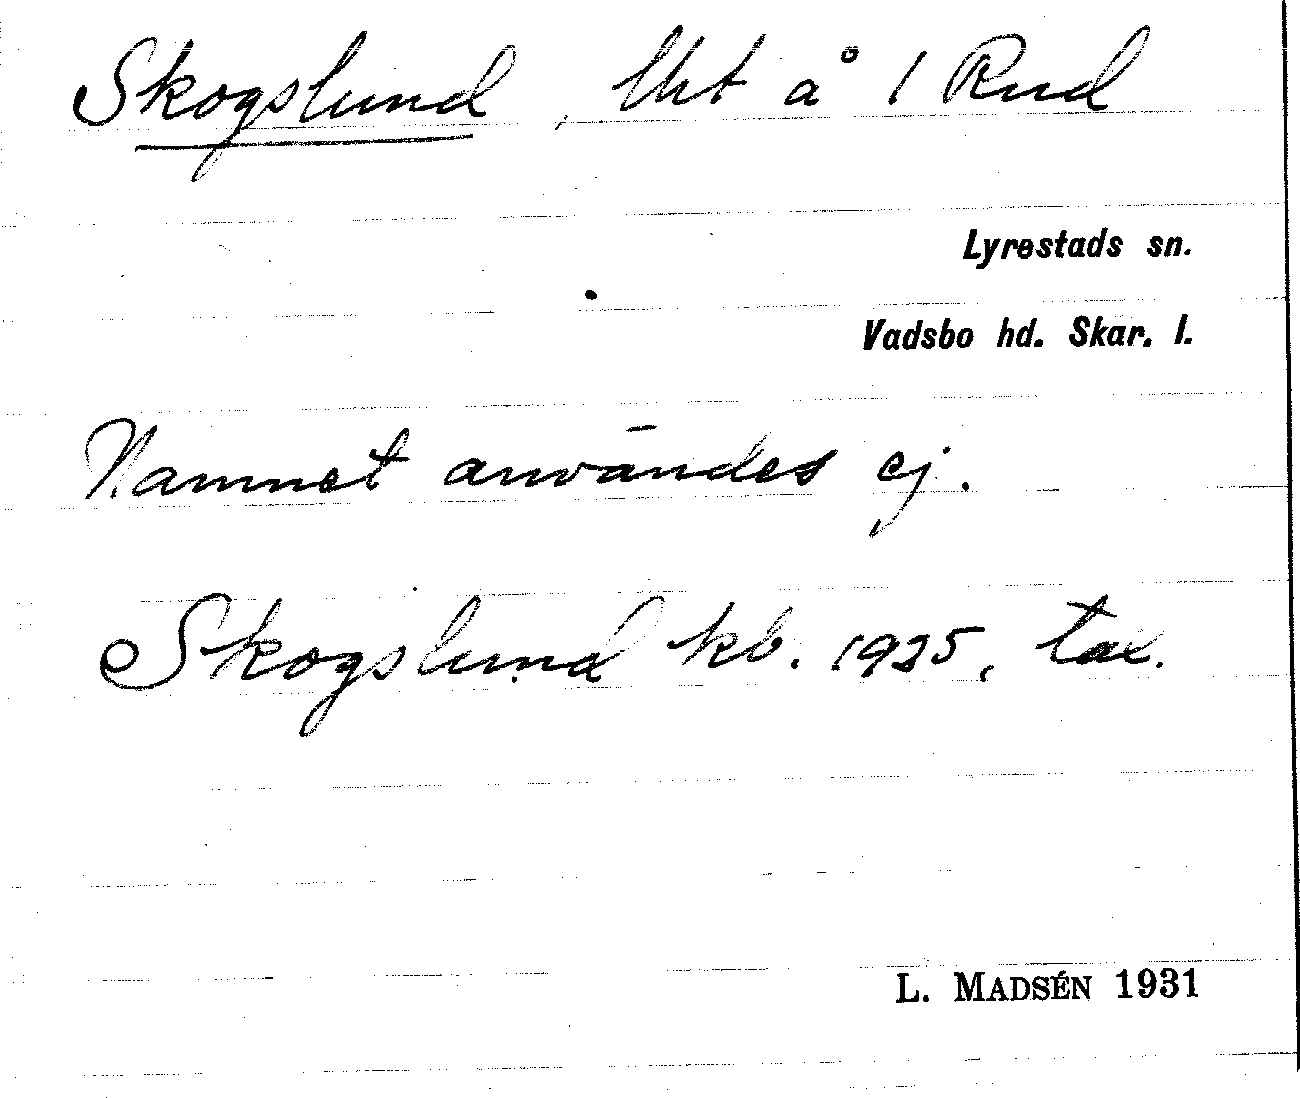 Skogslund, lht å 1 Rud
Lyrestads sn.
Vadsbo hd. Skar. l.
Namnet användes ej.
Skogslund kb. 1925, tax.
L. MADSÉN 1931